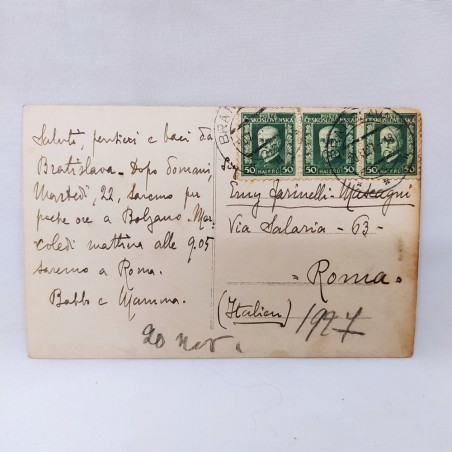 Saluti, pensieri e baci da
Bratislava. Dopo domani
Martedì, 22, saremo per
poche ore a Bolzano. Mer
coledì mattina alle 9.05
saremo a Roma.
Babbo e Mamma.
20 nov.
ČESKOSLOVENSKA
ČESKOSLOVENSKA
50 HALÉŘŮ 50
50 HALÉŘŮ 50
50 HALÉŘŮ 50
BRA
Emy Farinelli-Mascagni
Via Salaria - 63 -
= Roma =
(Italien)
1927